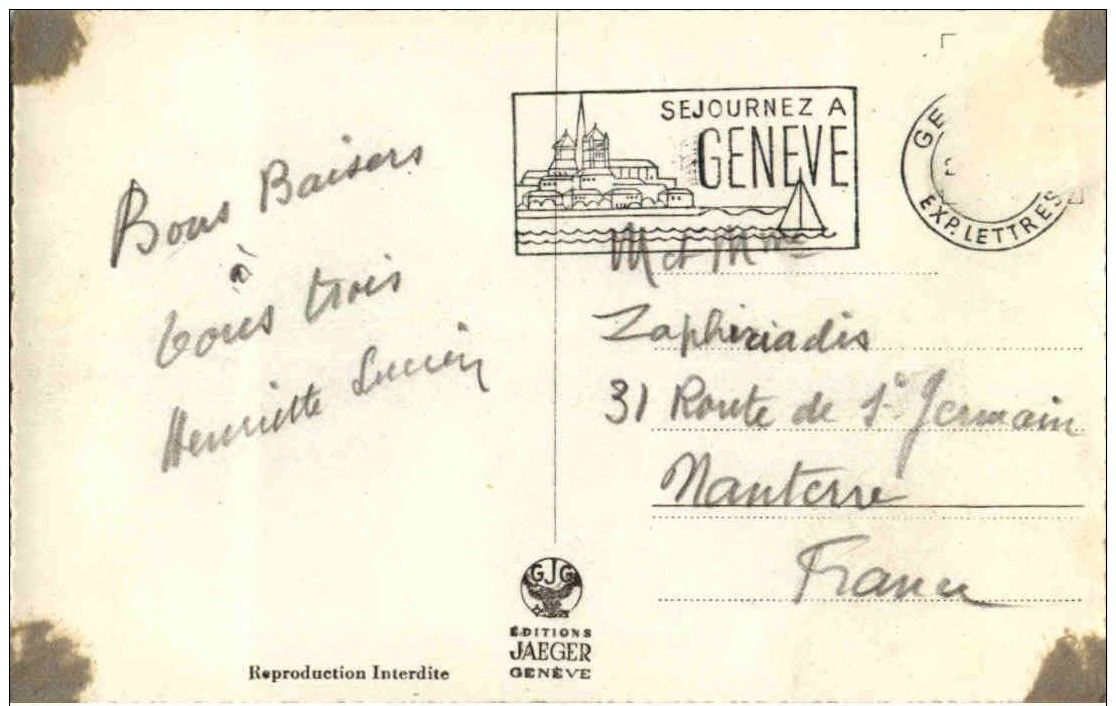 Bons Baisers
à
tous trois
Henriette Lucien
SEJOURNEZ A
GENEVE
GE
EXP. LETTRES
M et Mme
Zaphiriadis
31 Route de St Germain
Nanterre
France
GJG
ÉDITIONS
JAEGER
GENÈVE
Reproduction Interdite